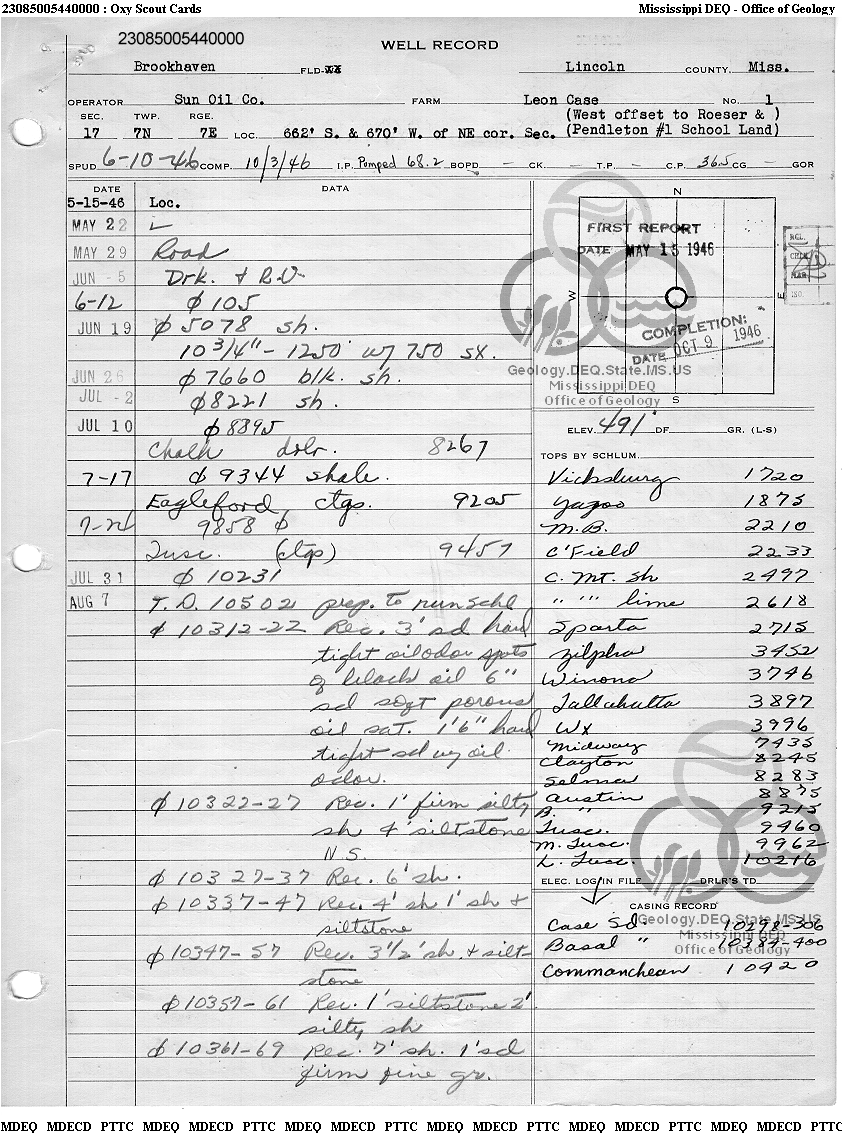 23085005440000 : Oxy Scout Cards Mississippi DEQ - Office of Geology
23085005440000
WELL RECORD
Brookhaven FLD. Lincoln COUNTY, Miss.
OPERATOR Sun Oil Co. FARM Leon Case No. 1
(West offset to Roeser & )
SEC. TWP. RGE.
17 7N 7E LOC. 662' S. & 670' W. of NE cor. Sec. (Pendleton #1 School Land)
SPUD 6-10-46 COMP. 10/3/46 I.P. Pumped 68.2 BOPD - CK. - T.P. - C.P. 365 CG - GOR
DATE DATA
5-15-46 Loc.
MAY 22 L
MAY 29 Road
JUN -5 Drk. + B.U.
6-12 φ 105
JUN 19 φ 5078 sh.
10 3/4" - 1250' w/ 750 sx.
JUN 26 φ 7660 blk. sh.
JUL -2 φ 8221 sh.
JUL 10 φ 8895
Chalk drlr. 8267
7-17 φ 9344 shale.
Eagleford ctgs. 9205
7-24 9858 φ
Tusc. (ctgs) 9457
JUL 31 φ 10231
AUG 7 T.D. 10502 prep. to run schl
φ 10312-22 Rec. 3' sd hard
tight oil odor spots
of black oil 6"
sd soft porous
oil sat. 1'6" hard
tight sd w/ oil
odor.
φ 10322-27 Rec. 1' firm silty
sh 4' siltstone
N.S.
φ 10327-37 Rec. 6' sh.
φ 10337-47 Rec. 4' sh 1' sh +
siltstone
φ 10347-57 Rec. 3 1/2' sh. + silt-
stone
φ 10357-61 Rec. 1' siltstone 2'
silty sh
φ 10361-69 Rec. 7' sh. 1' sd
firm fine gr.
N
W
E
S
FIRST REPORT
DATE MAY 15 1946
COMPLETION:
DATE OCT 9 1946
Geology.DEQ.State.MS.US
Mississippi DEQ
Office of Geology
ELEV. 491' DF GR. (L-S)
TOPS BY SCHLUM.
Vicksburg 1720
Yazoo 1875
M.B. 2210
C'Field 2233
C. Mt. Sh 2497
" " lime 2618
Sparta 2715
Zilpha 3452
Winona 3746
Tallahatta 3897
Wx 3996
Midway 7435
Clayton 8245
Selma 8283
Austin 8875
B. " 9215
Tusc. 9460
M. Tusc. 9962
L. Tusc. 10216
ELEC. LOG IN FILE DRLR'S TD
CASING RECORD
Case Sd 10298-306
Basal " 10384-400
Commanchean 10420
Geology.DEQ.State.MS.US
Mississippi DEQ
Office of Geology
MDEQ MDECD PTTC MDEQ MDECD PTTC MDEQ MDECD PTTC MDEQ MDECD PTTC MDEQ MDECD PTTC MDEQ MDECD PTTC